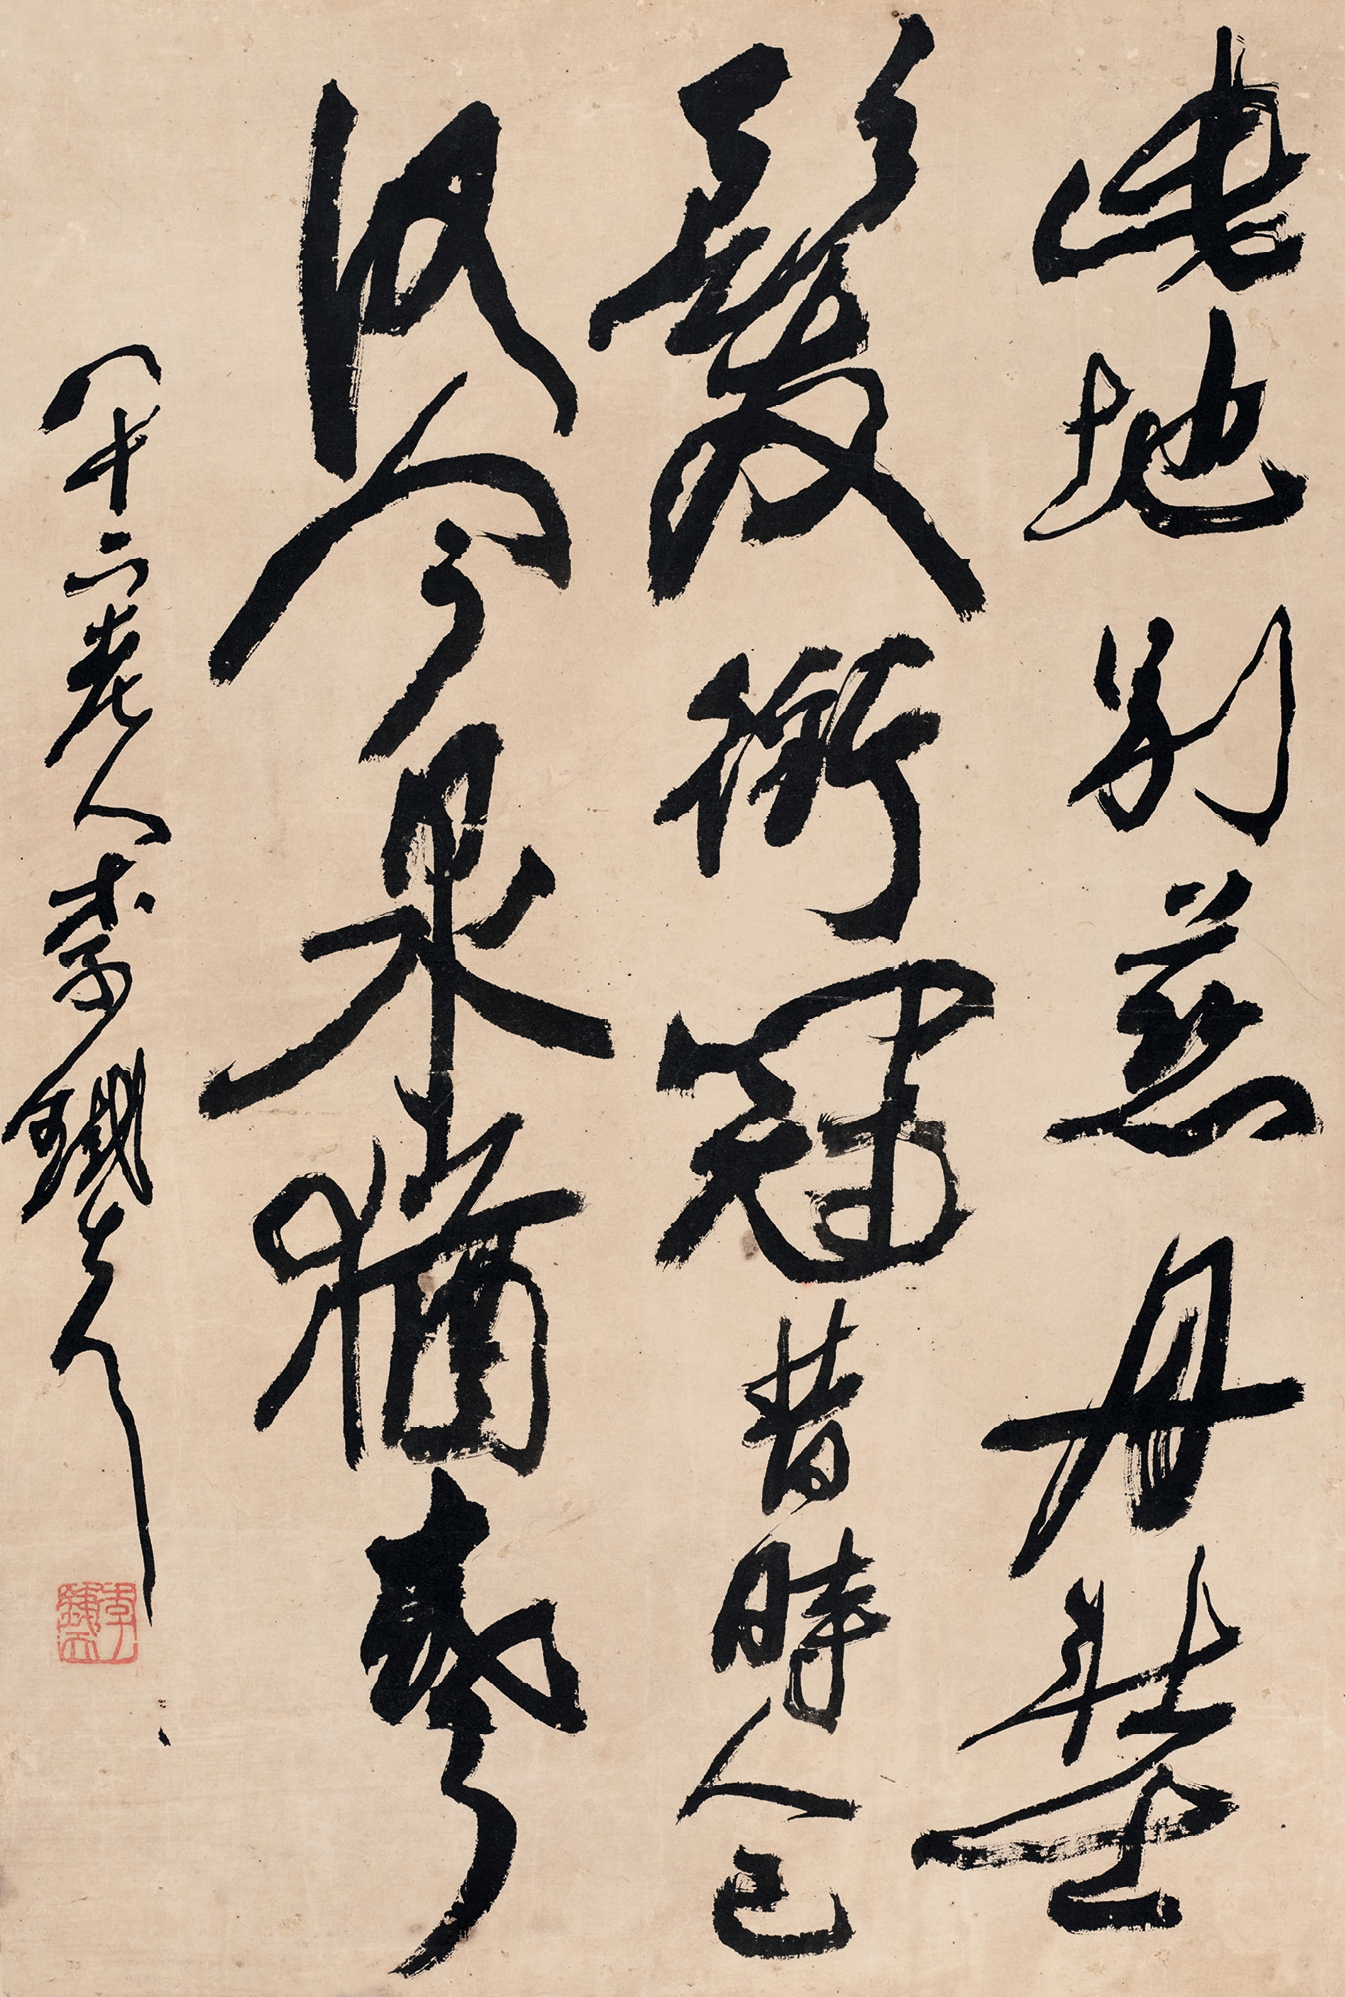 此地別燕丹壯士
髮衝冠昔時人已
没今日水猶寒
八十二老人李鐵夫